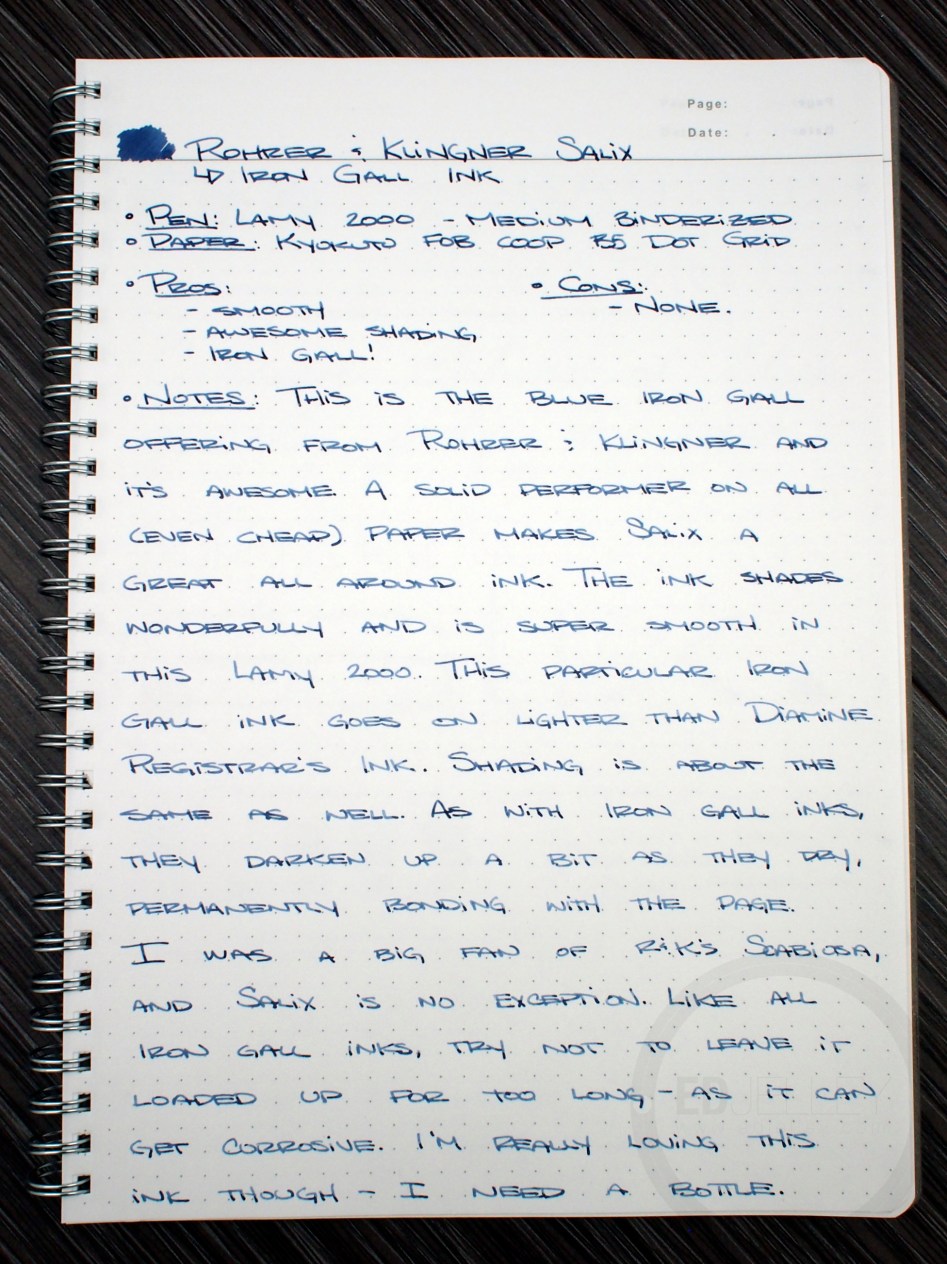 Page:
Date: . .
Rohrer & Klingner Salix
↳ Iron Gall Ink
• Pen: Lamy 2000 - Medium Binderized
• Paper: Kyokuto FOB COOP B5 Dot Grid
• Pros:
- Smooth
- Awesome shading
- Iron Gall!
• Cons:
- None.
• Notes: This is the blue iron gall
offering from Rohrer & Klingner and
it's awesome. A solid performer on all
(even cheap) paper makes Salix a
great all around ink. The ink shades
wonderfully and is super smooth in
this Lamy 2000. This particular iron
gall ink goes on lighter than Diamine
Registrar's Ink. Shading is about the
same as well. As with iron gall inks,
they darken up a bit as they dry,
permanently bonding with the page.
I was a big fan of R&K's Scabiosa,
and Salix is no exception. Like all
iron gall inks, try not to leave it
loaded up for too long - as it can
get corrosive. I'm really loving this
ink though - I need a bottle.
EDJELLEY